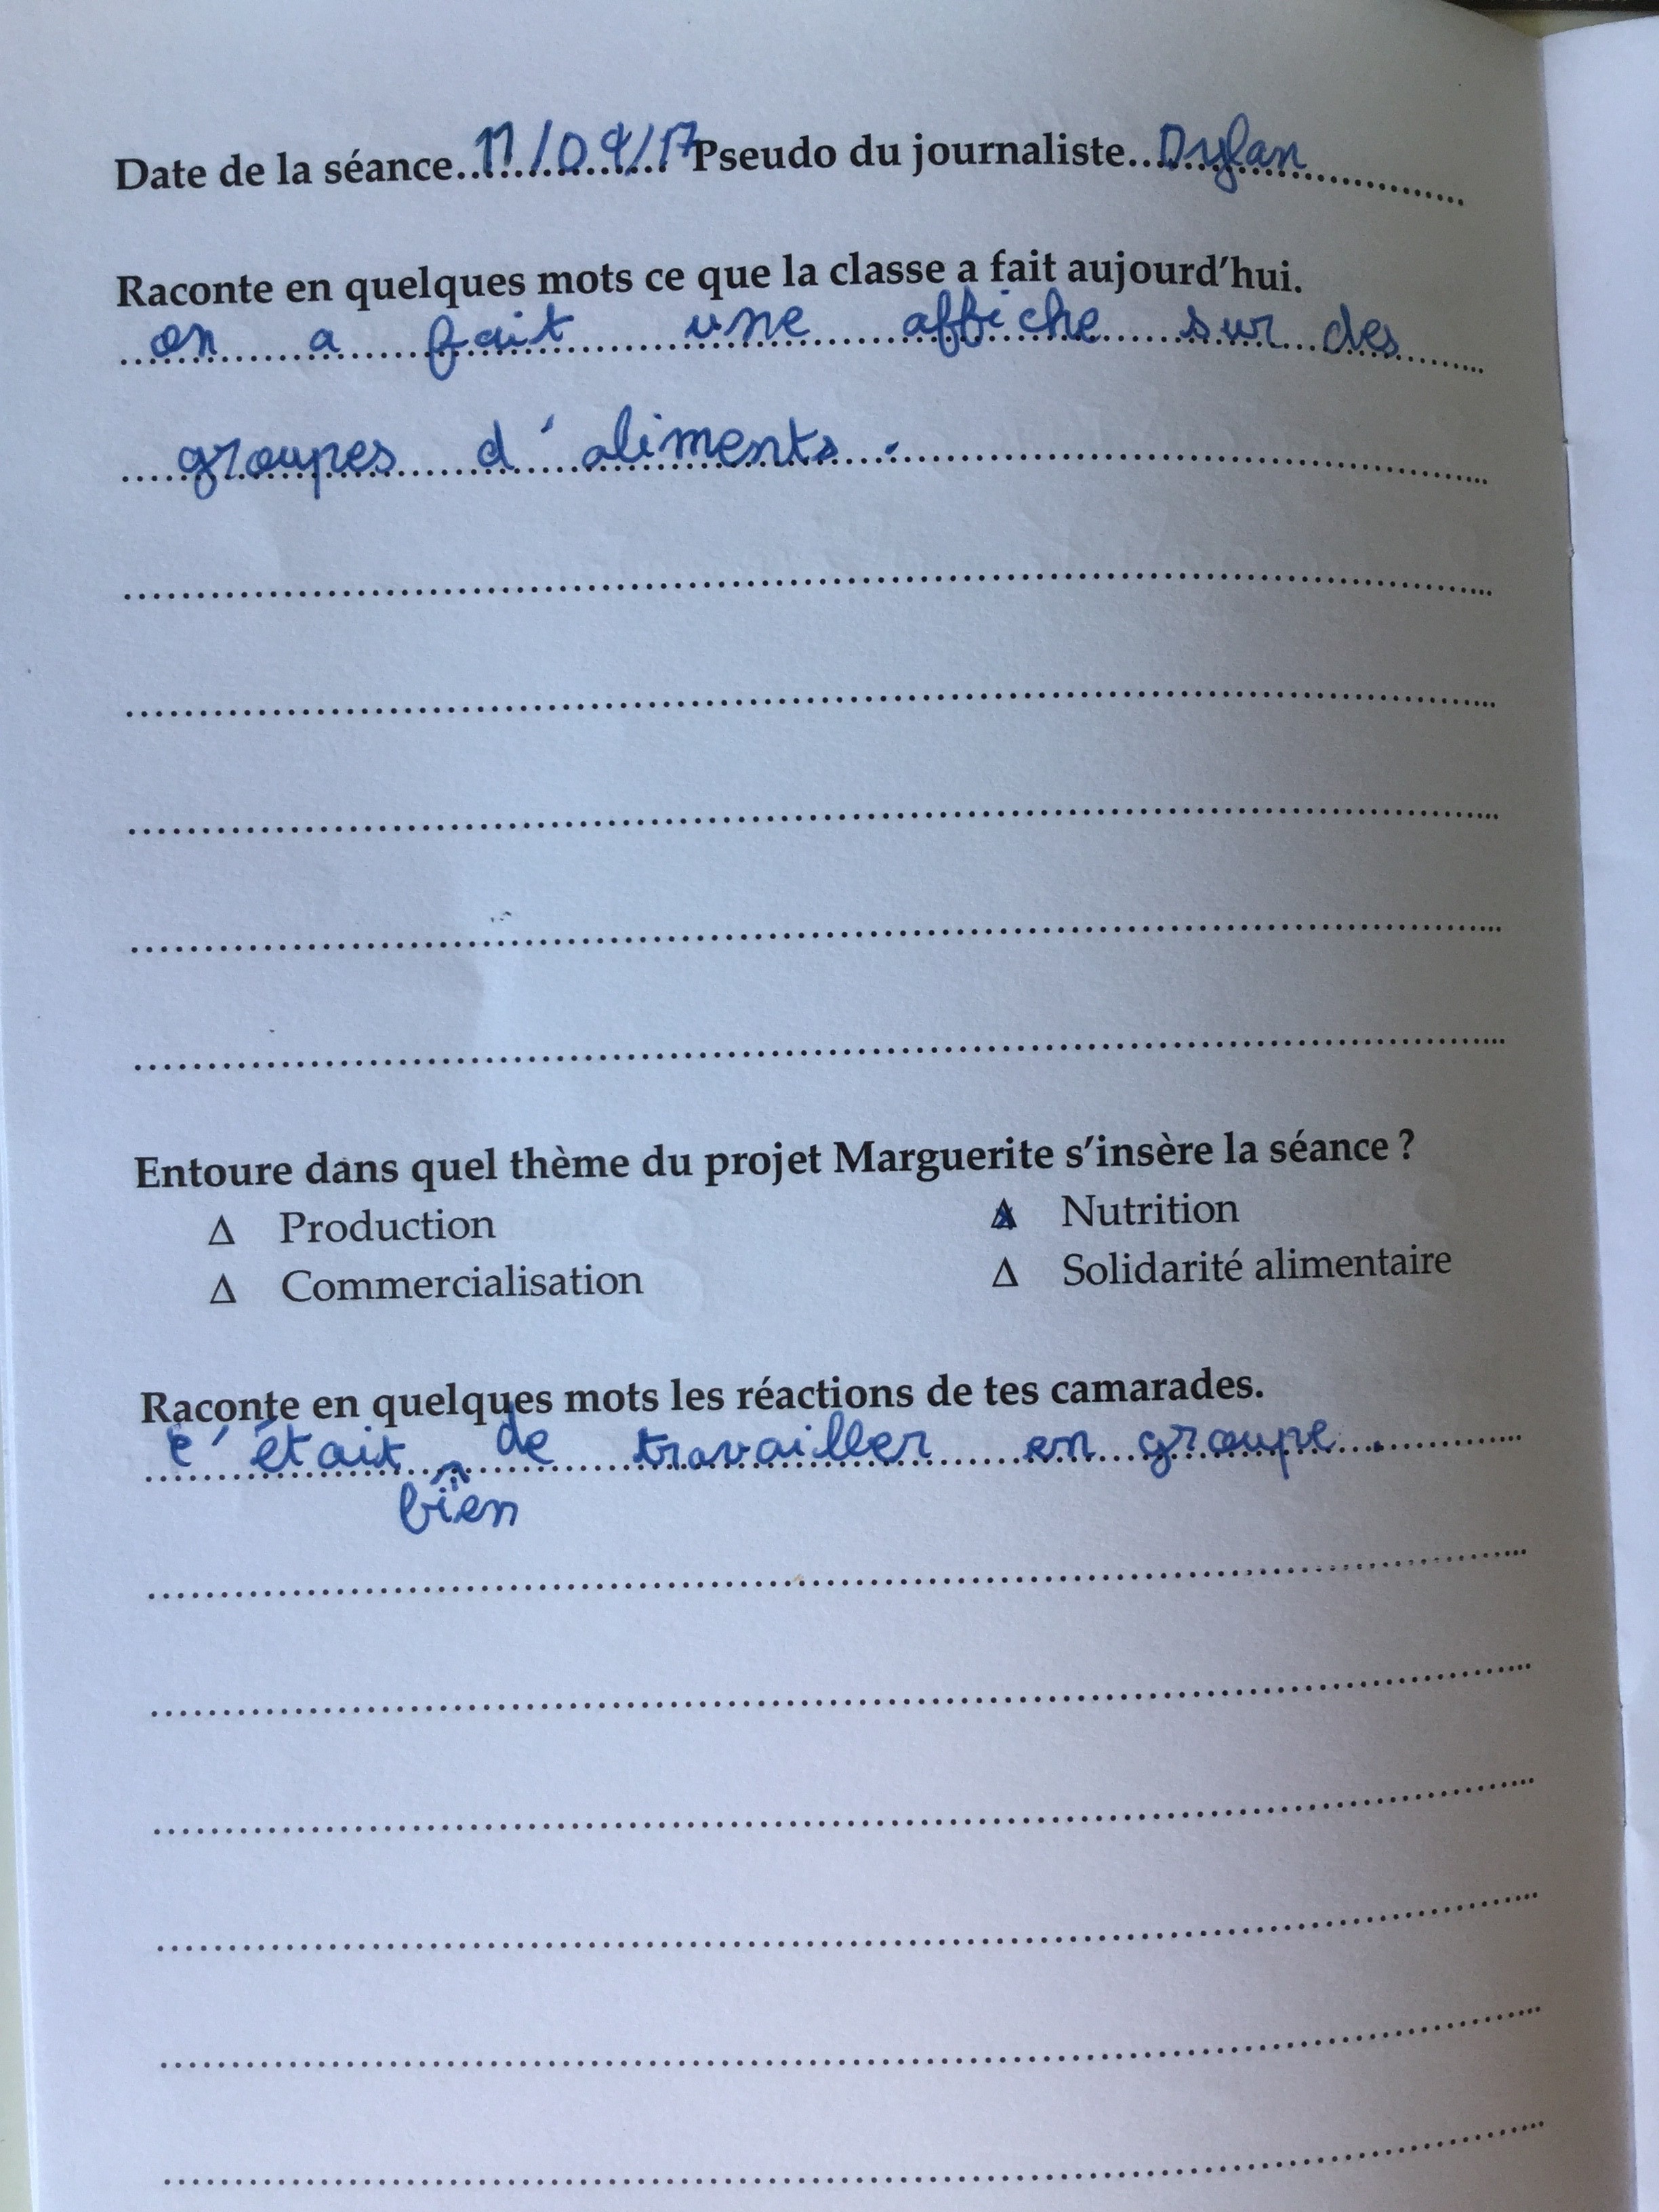 Date de la séance 11/09/17 Pseudo du journaliste Dylan
Raconte en quelques mots ce que la classe a fait aujourd'hui.
on a fait une affiche sur des
groupes d'aliments.
Entoure dans quel thème du projet Marguerite s'insère la séance ?
Δ Production
Δ Nutrition
Δ Commercialisation
Δ Solidarité alimentaire
Raconte en quelques mots les réactions de tes camarades.
c'était bien de travailler en groupe.